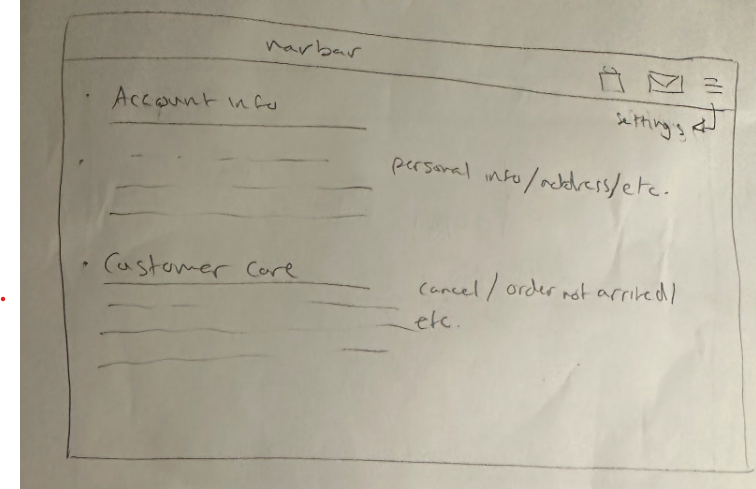 navbar
Account info
settings
personal info/address/etc.
Customer Care
cancel / order not arrived/
etc.